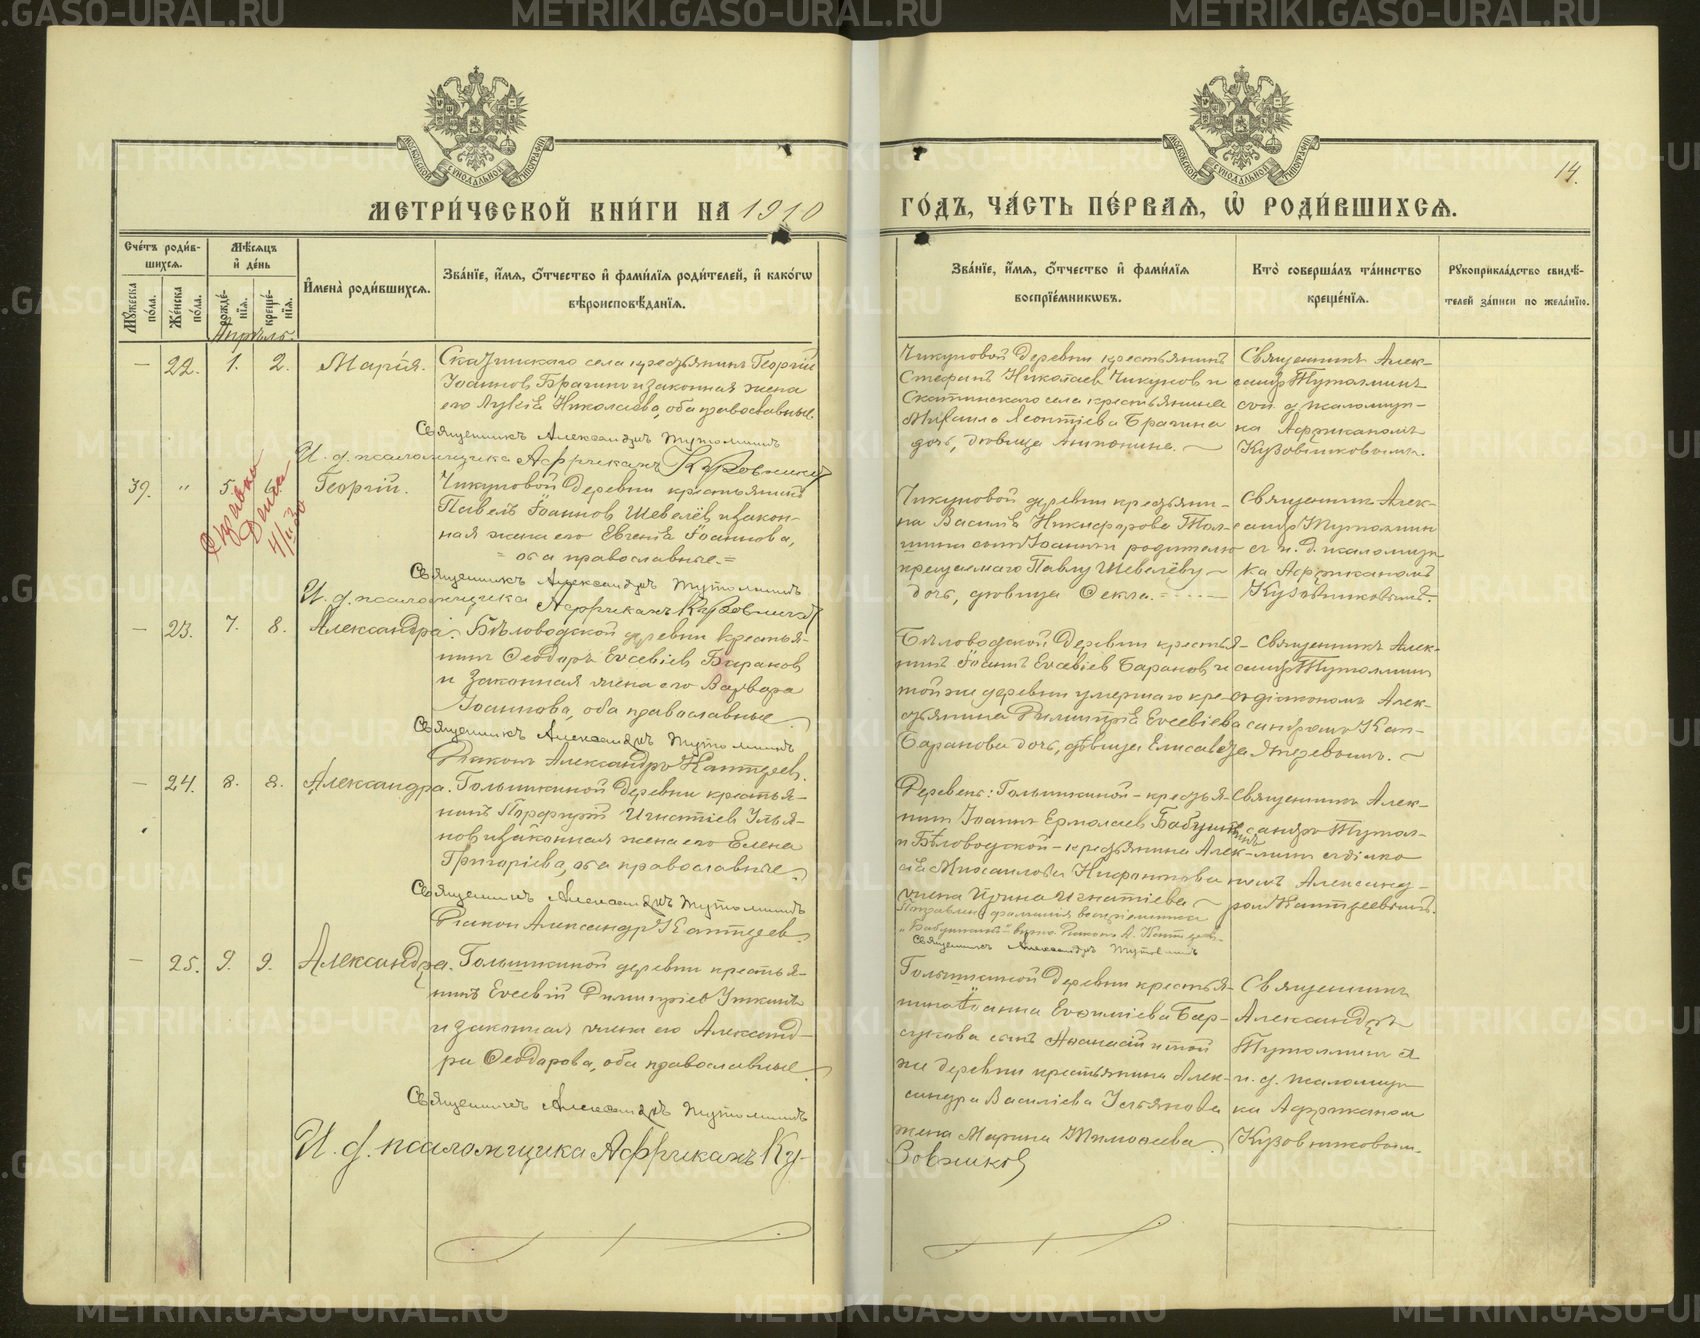 14.
МЕТРИ́ЧЕСКОЙ КНИ́ГИ НА 1910
ГО́ДЪ, ЧА́СТЬ ПЕ́РВАѦ, Ѡ҆ РОДИ́ВШИХСѦ.
Сче́тъ роди́в-
шихсѧ.
Мꙋ́жеска по́ла.
Же́нска по́ла.
Мѣ́сѧцъ
и҆ де́нь
рожде́-
нїѧ.
креще́-
нїѧ.
И҆мена̀ роди́вшихсѧ.
Зва́нїе, и҆́мѧ, ѻ҆́тчество и҆ фами́лїѧ роди́телей, и҆ како́гѡ
вѣроисповѣ́данїѧ.
Зва́нїе, и҆́мѧ, ѻ҆́тчество и҆ фами́лїѧ
воспрїе́мникѡвъ.
Кто̀ соверша́лъ та́инство
креще́нїѧ.
Рꙋкоприкла́дство свидѣ́-
телей за́писи по жела́нїю.
Апрѣль.
— 22. 1. 2. Марія.
села крестьянинъ Георгій
Іоанновъ Брагинъ и законная жена
его Николаева, оба православные.
Священникъ Александръ Тутолминъ
И. д. псаломщика Африканъ Кузовниковъ
Чикуновой деревни крестьянинъ
Стефанъ Николаевъ Чикуновъ и
села крестьянина
Михаила Леонтіева Брагина
дочь, дѣвица Антонина. —
Священникъ Алек-
сандръ Тутолминъ
съ и. д. псаломщи-
ка Африканомъ
Кузовниковымъ.
39. " 5. Георгій.
Справка
Дана
Чикуновой деревни крестьянинъ
Павелъ Іоанновъ Шевелёвъ и закон-
ная жена его Евгенія Іоаннова,
= оба православные. =
Священникъ Александръ Тутолминъ
И. д. псаломщика Африканъ Кузовниковъ
Чикуновой деревни крестьяни-
на Василія Никифорова
сынъ Іоаннъ и родителю
крещаемаго Павлу Шевелёву —
дочь, дѣвица Ѳекла. —
Священникъ Алек-
сандръ Тутолминъ
съ и. д. псаломщи-
ка Африканомъ
Кузовниковымъ.
— 23. 7. 8. Александра.
Бѣловодской деревни крестья-
нинъ Ѳеодоръ Евсевіевъ Барановъ
и законная жена его Варвара
Іоаннова, оба православные.
Священникъ Александръ Тутолминъ
Діаконъ Александръ Кантѣевъ.
Бѣловодской деревни крестья-
нинъ Іоаннъ Евсевіевъ Барановъ и
той же деревни умершаго кре-
стьянина Димитрія Евсевіева
Баранова дочь, дѣвица Елисавета.
Священникъ Алек-
сандръ Тутолминъ
съ діакономъ Алек-
сандромъ Кан-
тѣевымъ. —
— 24. 8. 8. Александра.
Голышкиной деревни крестья-
нинъ Порфирій Игнатіевъ Улья-
новъ и законная жена его Елена
Григоріева, оба православные.
Священникъ Александръ Тутолминъ
Діаконъ Александръ Кантѣевъ.
Деревень: Голышкиной - крестья-
нинъ Іоаннъ Ермолаевъ Бабушкинъ
и Бѣловодской - крестьянина Алек-
сѣя Михаилова
жена Ирина Игнатіева —
Исправлена фамилія воспріемника
„Бабушкинъ" вѣрно. Діаконъ А. Кантѣевъ.
Священникъ Александръ Тутолминъ
Священникъ Алек-
сандръ Тутол-
минъ съ діако-
номъ Александ-
ромъ Кантѣевымъ.
— 25. 9. 9. Александра.
Голышкиной деревни крестья-
нинъ Евсевій Димитріевъ
и законная жена его Александ-
ра Ѳеодорова, оба православные.
Священникъ Александръ Тутолминъ
И. д. псаломщика Африканъ Ку-
зовниковъ
Голышкиной деревни крестья-
нина Іоанна Евѳиміева Бар-
сукова сынъ Аѳанасій и той
же деревни крестьянина Алек-
сандра Василіева Ульянова
жена Марина Тимоѳеева.
Священникъ
Александръ
Тутолминъ съ
и. д. псаломщи-
ка Африканомъ
Кузовниковымъ.
METRIKI.GASO-URAL.RU